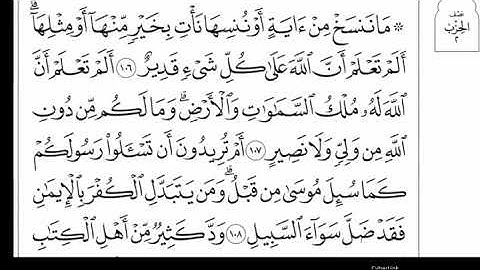 ۞ مَا نَنسَخْ مِنْ ءَايَةٍ أَوْ نُنسِهَا نَأْتِ بِخَيْرٍ مِّنْهَآ أَوْ مِثْلِهَآۗ
أَلَمْ تَعْلَمْ أَنَّ ٱللَّهَ عَلَىٰ كُلِّ شَىْءٍ قَدِيرٌ ١٠٦ أَلَمْ تَعْلَمْ أَنَّ
ٱللَّهَ لَهُۥ مُلْكُ ٱلسَّمَٰوَٰتِ وَٱلْأَرْضِۗ وَمَا لَكُم مِّن دُونِ
ٱللَّهِ مِن وَلِىٍّ وَلَا نَصِيرٍ ١٠٧ أَمْ تُرِيدُونَ أَن تَسْـَٔلُوا۟ رَسُولَكُمْ
كَمَا سُئِلَ مُوسَىٰ مِن قَبْلُۗ وَمَن يَتَبَدَّلِ ٱلْكُفْرَ بِٱلْإِيمَٰنِ
فَقَدْ ضَلَّ سَوَآءَ ٱلسَّبِيلِ ١٠٨ وَدَّ كَثِيرٌ مِّنْ أَهْلِ ٱلْكِتَٰبِ
نصف
الحزب
٢
CyberLink